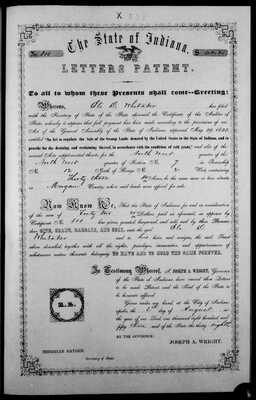 X
The State of Indiana,
LETTERS PATENT.
To all to whom these Presents shall come--Greeting:
Whereas, Whitaker has filed
with the Secretary of the State aforesaid the Certificate of the Auditor of
State, whereby it appears that full payment has been made according to the provisions of an
Act of the General Assembly of the State of Indiana, approved May
entitled "An Act to regulate the Sale of the Swamp Lands donated by the United States to the State of Indiana, and to
provide for the draining and reclaiming thereof, in accordance with the condition of said grant," and also of the
several Acts supplemental thereto, for the North West quarter of the
North West quarter of Section No. 7 in Township
No. 12 North of Range No. 2 West, containing
Thirty three Acres, be the same more or less, situate
in Morgan County, where said lands were offered for sale.
Now Know Ye, That the State of Indiana, for and in consideration
of the sum of Dollars, paid as aforesaid, as appears by
Certificate No. has given, granted, bargained and sold, and by these Presents
does GIVE, GRANT, BARGAIN, AND SELL, unto the said
Whitaker and to heirs and assigns, the said Tract
above described, together with all the rights, privileges, immunities and appurtenances of
whatsoever nature thereunto belonging TO HAVE AND TO HOLD THE SAME FOREVER.
In Testimony Whereof, I, JOSEPH A. WRIGHT, Governor
of the State of Indiana, have caused these Letters
to be made Patent, and the Seal of the State to
be hereunto affixed.
Given under my hand, at the City of Indian-
apolis, the day of August in
the year of our Lord, one thousand eight hundred and
fifty and of the State the thirty
BY THE GOVERNOR:
JOSEPH A. WRIGHT.
NEHEMIAH HAYDEN
Secretary of State.